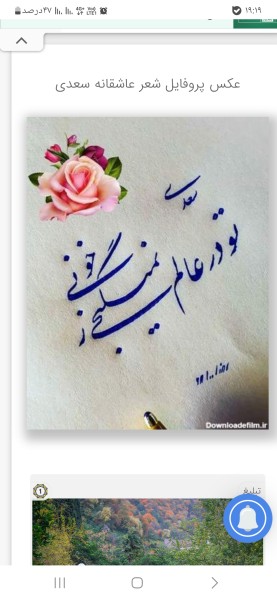 ۱۹:۱۹
۴۷درصد
عکس پروفایل شعر عاشقانه سعدی
سعدی
تو در عالم نمیگنجی ز خوبی
Downloadefilm.ir
تبلیغ
1